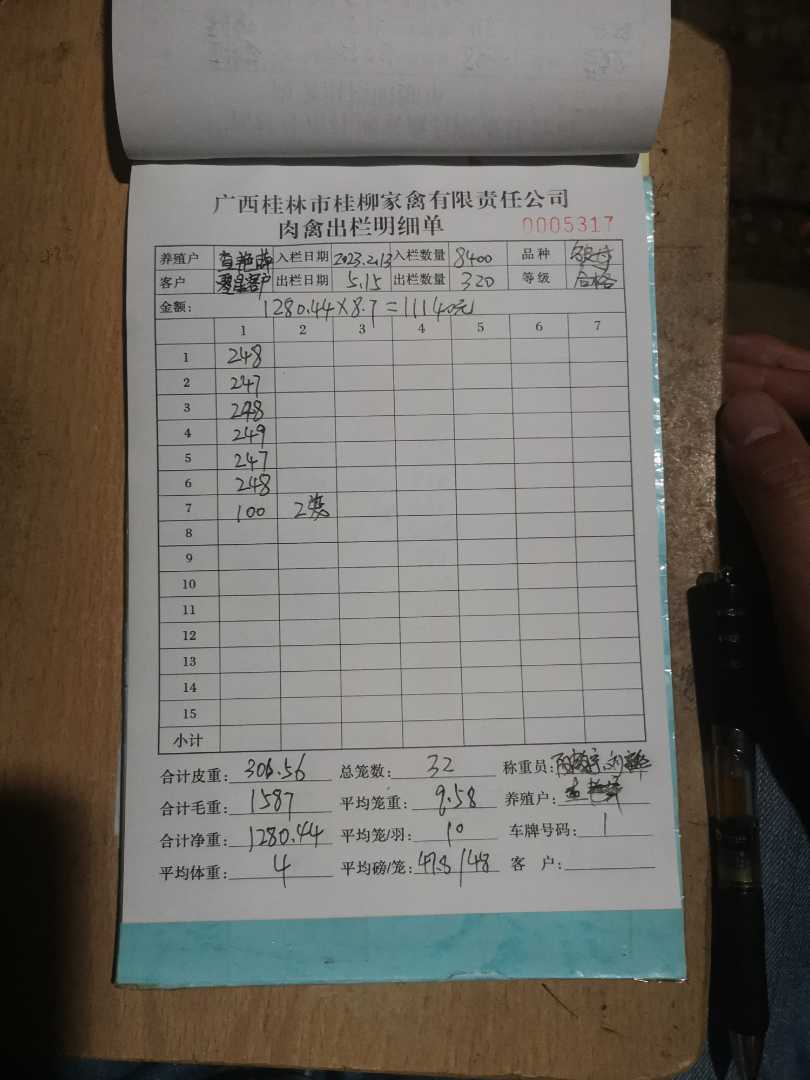 广西桂林市桂柳家禽有限责任公司
肉禽出栏明细单 0005317
养殖户 入栏日期 2023.2.13 入栏数量 8400 品种
客户 零星客户 出栏日期 5.15 出栏数量 320 等级 合格
金额: 1280.44×8.7=11140元
1 2 3 4 5 6 7
1 248
2 247
3 248
4 249
5 247
6 248
7 100 2笼
8
9
10
11
12
13
14
15
小计
合计皮重: 306.56 总笼数: 32 称重员:
合计毛重: 1587 平均笼重: 9.58 养殖户:
合计净重: 1280.44 平均笼/羽: 10 车牌号码: 1
平均体重: 4 平均磅/笼: 47.8/148 客 户: